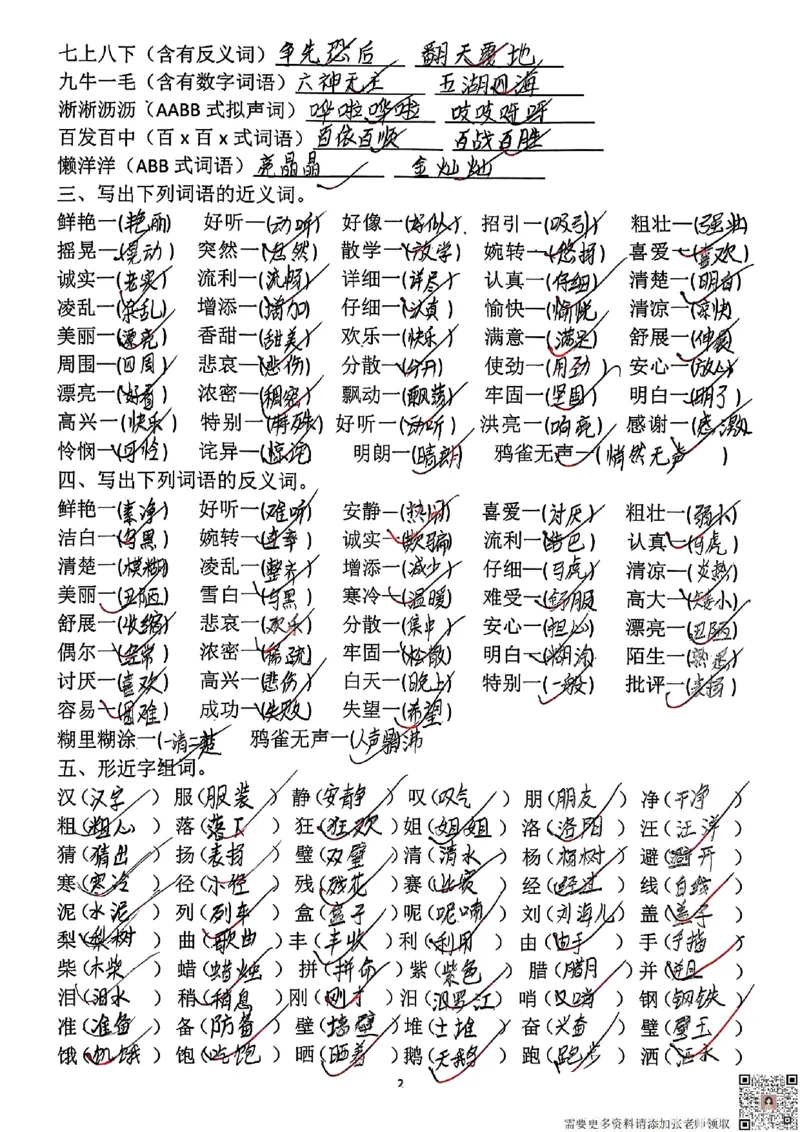 七上八下（含有反义词）争先恐后 翻天覆地
九牛一毛（含有数字词语）六神无主 五湖四海
淅淅沥沥（AABB 式拟声词）哗啦哗啦 吱吱呀呀
百发百中（百 x 百 x 式词语）百依百顺 百战百胜
懒洋洋（ABB 式词语）亮晶晶 金灿灿
三、写出下列词语的近义词。
鲜艳—(艳丽) 好听—(动听) 好像—(好似) 招引—(吸引) 粗壮—(强壮)
摇晃—(晃动) 突然—(忽然) 散学—(放学) 婉转—(悠扬) 喜爱—(喜欢)
诚实—(老实) 流利—(流畅) 详细—(详尽) 认真—(仔细) 清楚—(明白)
凌乱—(杂乱) 增添—(增加) 仔细—(认真) 愉快—(愉悦) 清凉—(凉快)
美丽—(漂亮) 香甜—(甜美) 欢乐—(快乐) 满意—(满足) 舒展—(伸展)
周围—(四周) 悲哀—(悲伤) 分散—(分开) 使劲—(用劲) 安心—(放心)
漂亮—(好看) 浓密—(稠密) 飘动—(飘荡) 牢固—(坚固) 明白—(明了)
高兴—(快乐) 特别—(特殊) 好听—(动听) 洪亮—(响亮) 感谢—(感激)
怜悯—(可怜) 诧异—(惊诧) 明朗—(晴朗) 鸦雀无声—(悄然无声)
四、写出下列词语的反义词。
鲜艳—(素净) 好听—(难听) 安静—(热闹) 喜爱—(讨厌) 粗壮—(弱小)
洁白—(乌黑) 婉转—(直率) 诚实—(欺骗) 流利—(结巴) 认真—(马虎)
清楚—(模糊) 凌乱—(整齐) 增添—(减少) 仔细—(马虎) 清凉—(炎热)
美丽—(丑陋) 雪白—(乌黑) 寒冷—(温暖) 难受—(舒服) 高大—(矮小)
舒展—(收缩) 悲哀—(欢乐) 分散—(集中) 安心—(担心) 漂亮—(丑陋)
偶尔—(经常) 浓密—(稀疏) 牢固—(松散) 明白—(糊涂) 陌生—(熟悉)
讨厌—(喜欢) 高兴—(悲伤) 白天—(晚上) 特别—(一般) 批评—(表扬)
容易—(困难) 成功—(失败) 失望—(希望)
糊里糊涂—(一清二楚 鸦雀无声—(人声鼎沸
五、形近字组词。
汉(汉字) 服(服装) 静(安静) 叹(叹气) 朋(朋友) 净(干净)
粗(粗心) 落(落下) 狂(狂欢) 姐(姐姐) 洛(洛阳) 汪(汪洋)
猜(猜出) 扬(表扬) 璧(双璧) 清(清水) 杨(杨树) 避(避开)
寒(寒冷) 径(小径) 残(残花) 赛(比赛) 经(经过) 线(白线)
泥(水泥) 列(列车) 盒(盒子) 呢(呢喃) 刘(刘海儿) 盖(盖子)
梨(梨树) 曲(歌曲) 丰(丰收) 利(利用) 由(由于) 手(手指)
柴(木柴) 蜡(蜡烛) 拼(拼命) 紫(紫色) 腊(腊月) 并(并且)
泪(泪水) 稍(稍息) 刚(刚才) 汨(汨罗江) 哨(口哨) 钢(钢铁)
准(准备) 备(防备) 壁(墙壁) 堆(土堆) 奋(兴奋) 璧(璧玉)
饿(饥饿) 饱(吃饱) 晒(晒着) 鹅(天鹅) 跑(跑步) 洒(洒水)
2
需要更多资料请添加张老师领取